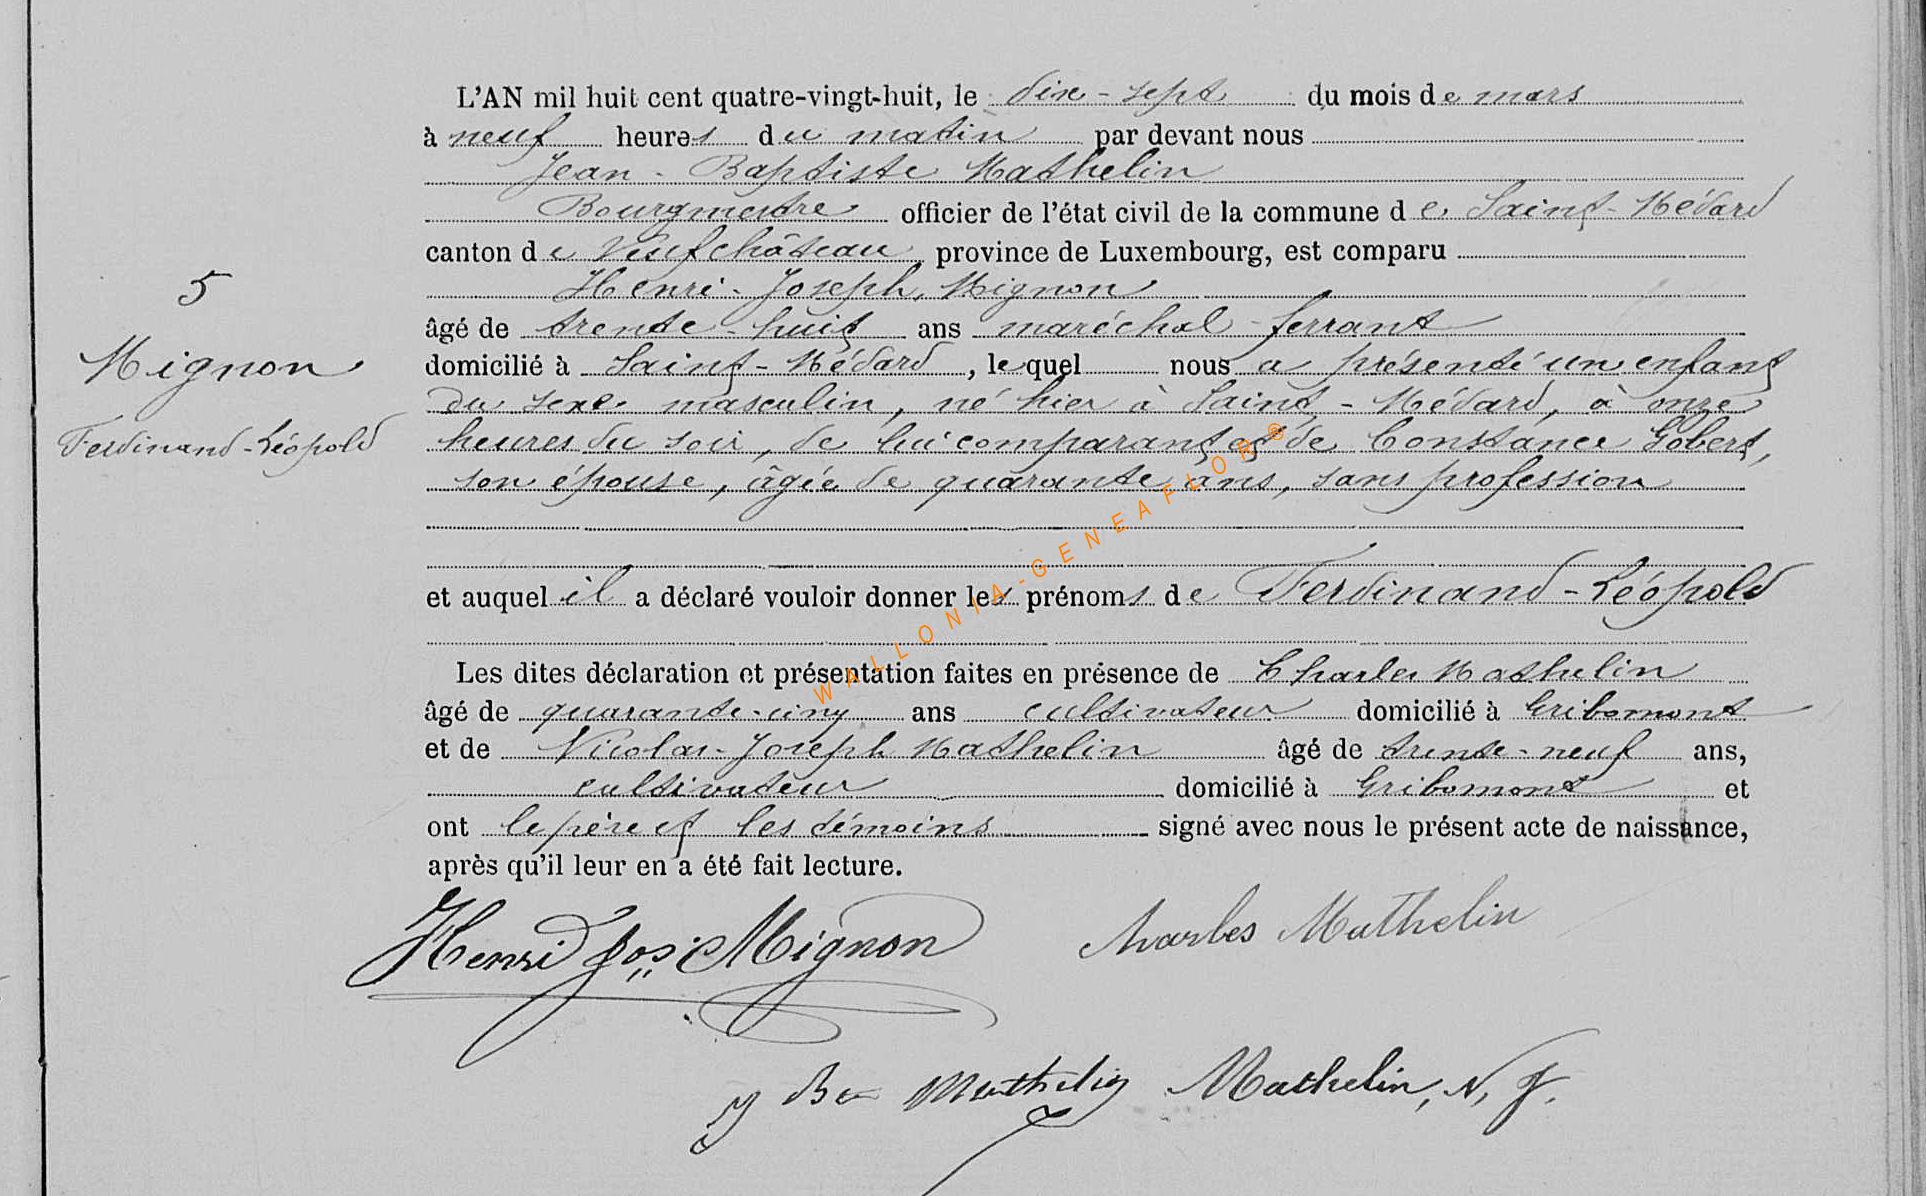 L'AN mil huit cent quatre-vingt-huit, le dix-sept du mois de mars
à neuf heures du matin par devant nous
Jean-Baptiste Mathelin
Bourgmestre officier de l'état civil de la commune de Saint-Médard
canton de Neufchâteau, province de Luxembourg, est comparu
Henri-Joseph Mignon
âgé de trente-huit ans maréchal-ferrant
domicilié à Saint-Médard, lequel nous a présenté un enfant
du sexe masculin, né hier à Saint-Médard, à onze
heures du soir, de lui comparant et de Constance Gobert,
son épouse, âgée de quarante ans, sans profession
et auquel il a déclaré vouloir donner les prénoms de Ferdinand-Léopold
Les dites déclaration et présentation faites en présence de Charles Mathelin
âgé de quarante-cinq ans cultivateur domicilié à Gribomont
et de Nicolas-Joseph Mathelin âgé de trente-neuf ans,
cultivateur domicilié à Gribomont et
ont le père et les témoins signé avec nous le présent acte de naissance,
après qu'il leur en a été fait lecture.
5
Mignon
Ferdinand-Léopold
Henri Jos. Mignon
Charles Mathelin
J Bte Mathelin
Mathelin, N, J.
WALLONIA-GENEAFLOR®